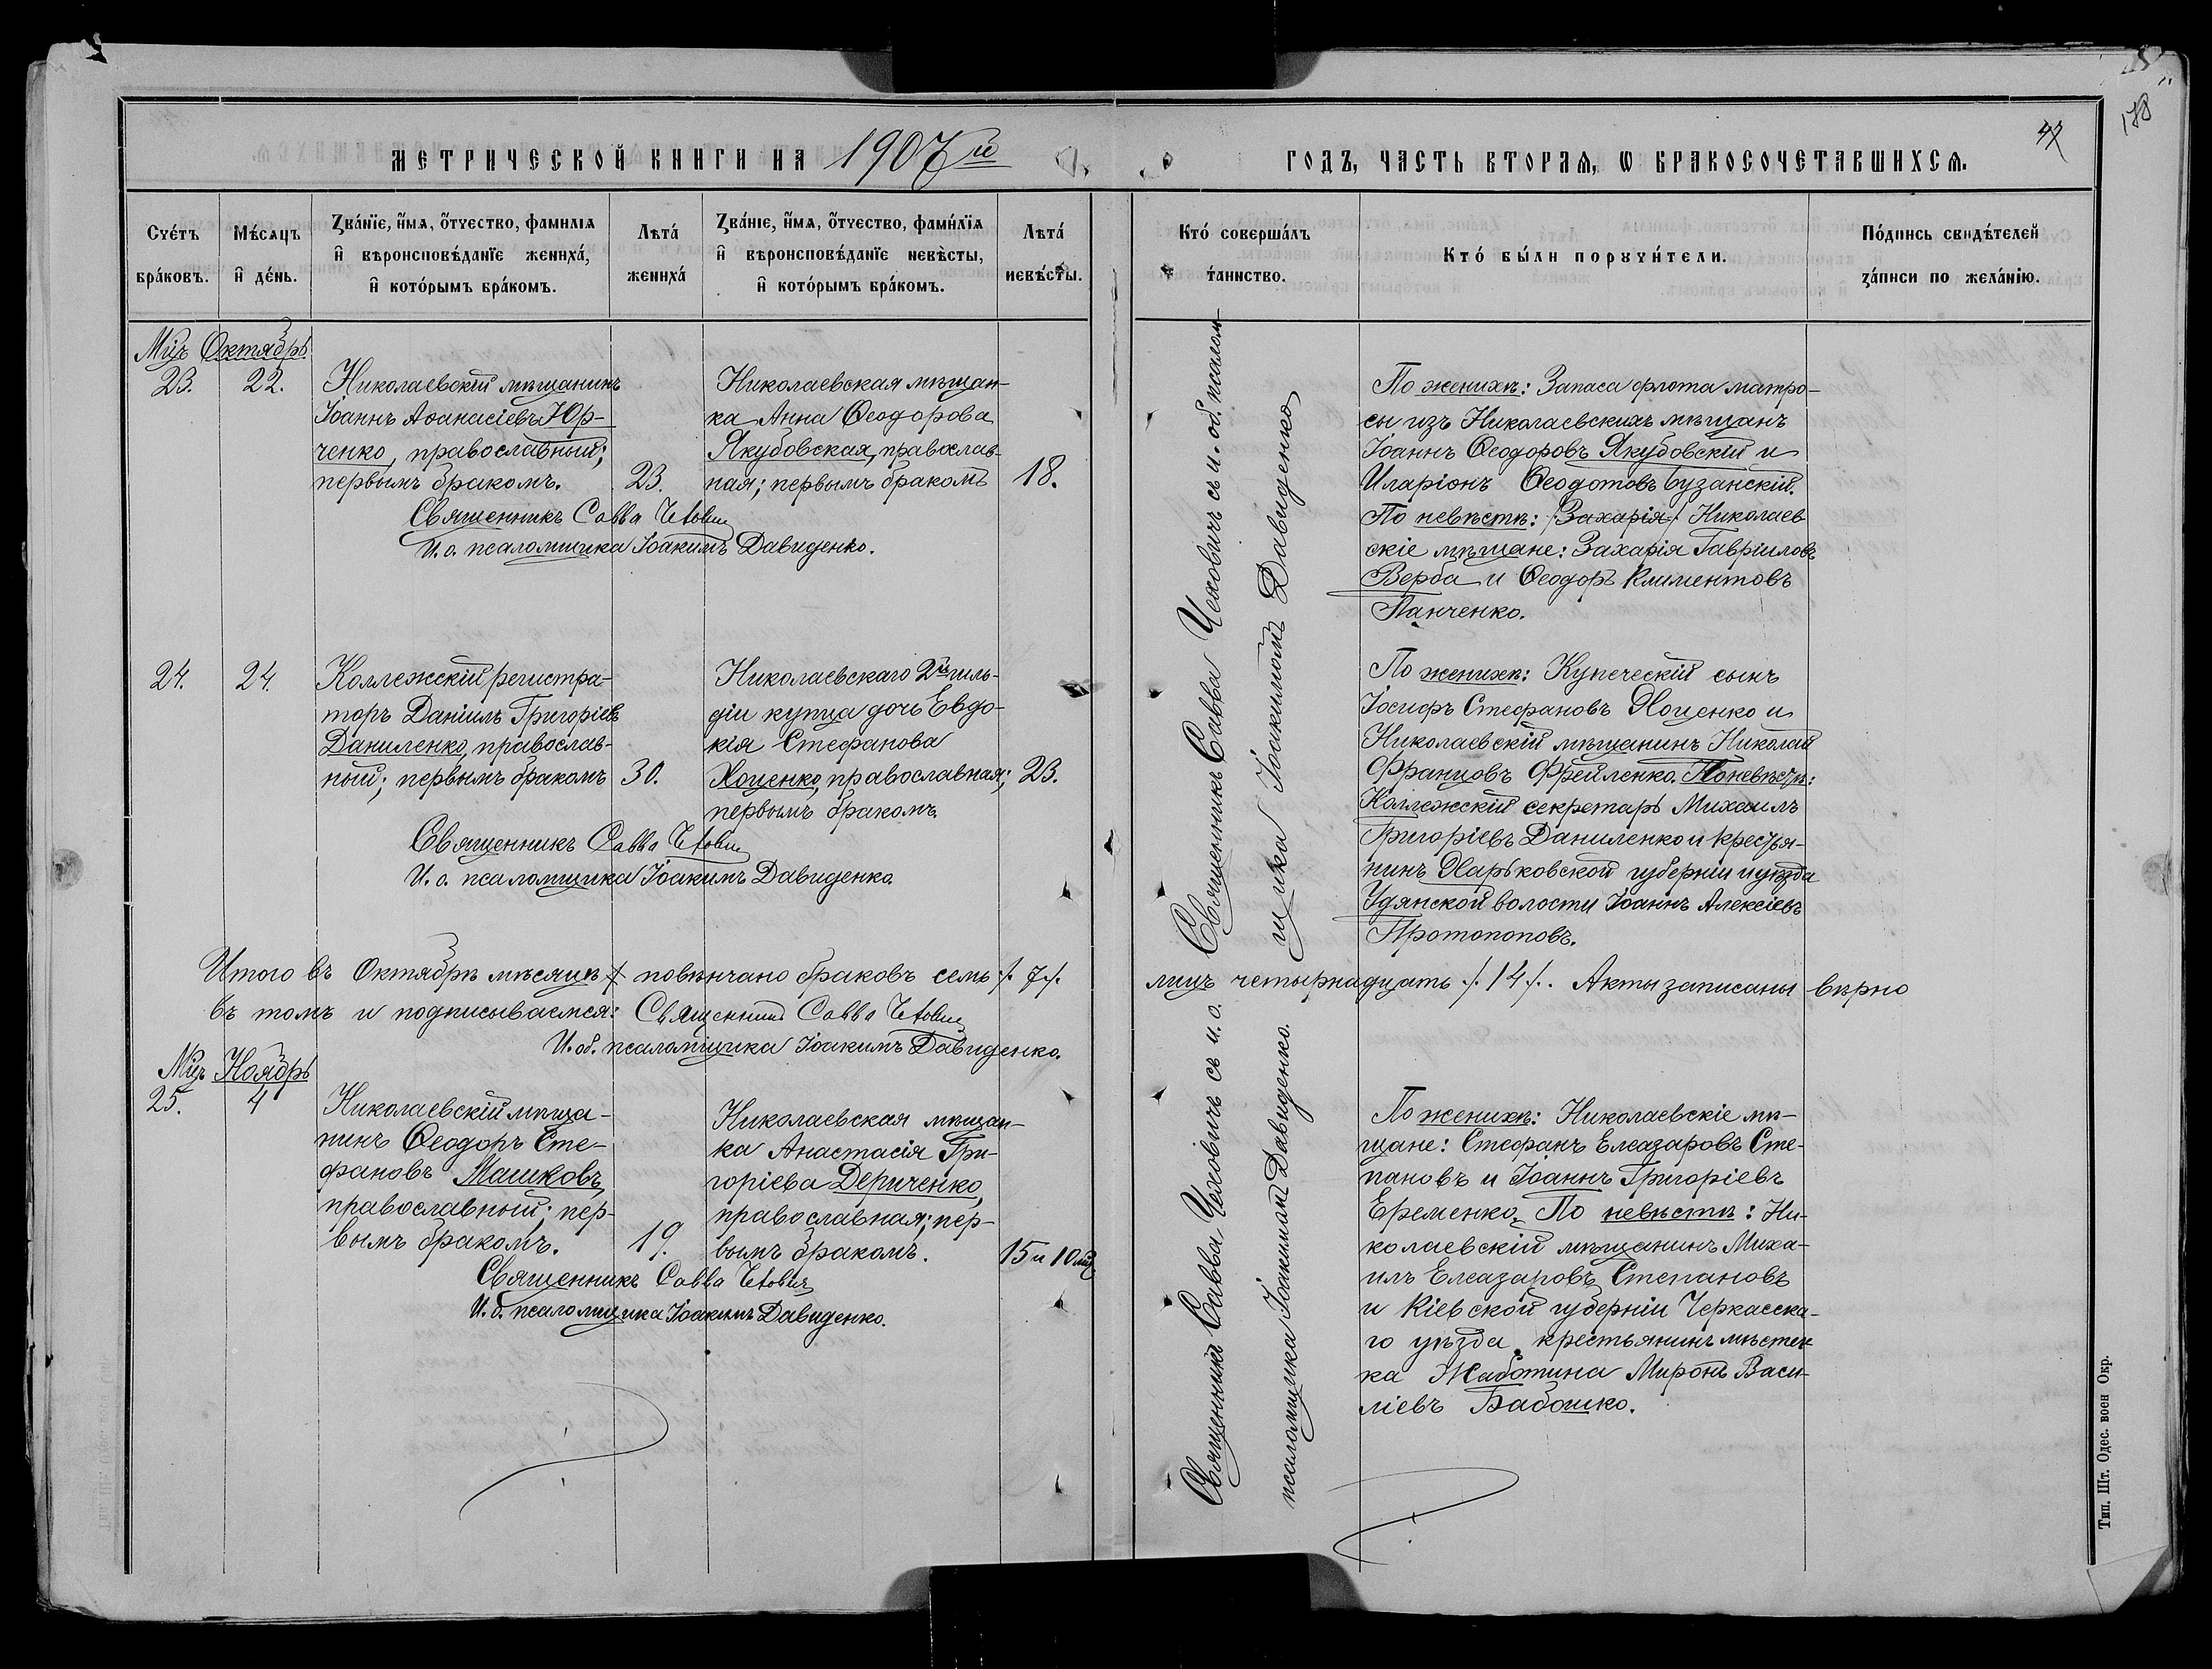 МЕТРИЧЕСКОЙ КНИГИ НА 1907й
ГОДЪ, ЧАСТЬ ВТОРАЯ, Ѡ БРАКОСОЧЕТАВШИХСЯ.
47
178
Сче́тъ бра́ковъ.
Мѣ́сяцъ и҆ де́нь.
Зва́нїе, и҆́мя, ѻ҆́тчество, фамилїя
и҆ вѣроисповѣ́данїе жениха́,
и҆ кото́рымъ бра́комъ.
Лѣта́ жениха́
Зва́нїе, и҆́мя, ѻ҆́тчество, фами́лїя
и҆ вѣроисповѣ́данїе невѣ́сты,
и҆ кото́рымъ бра́комъ.
Лѣта́ невѣ́сты.
Кто́ соверша́лъ таинство.
Кто́ бы́ли поручи́тели.
По́дпись свидѣ́телей
за́писи по жела́нію.
Мцъ Октябрь
23.
22.
Николаевскій мѣщанинъ
Іоаннъ Аѳанасіевъ Юр-
ченко, православный;
первымъ бракомъ.
23.
Николаевская мѣщан-
ка Анна Ѳеодорова
Якубовская, православ-
ная; первымъ бракомъ
18.
Священникъ Савва Чехович
И. о. псаломщика Іоакимъ Давиденко.
Священникъ Савва Чеховичъ съ и. об. псалом-
щика Іоакимомъ Давиденко
По женихѣ: Запаса флота матро-
сы изъ Николаевскихъ мѣщанъ
Іоаннъ Ѳеодоровъ Якубовскій и
Иларіонъ Ѳеодотовъ Бузанскій.
По невѣстѣ: /Захарія/ Николаев
скіе мѣщане: Захарія Гавріиловъ
Верба и Ѳеодоръ Климентовъ
Панченко.
24.
24.
Коллежскій регистра-
торъ Даніилъ Григоріевъ
Даниленко, православ-
ный; первымъ бракомъ
30.
Николаевскаго 2й гиль-
діи купца дочь Евдо-
кія Стефанова
Хоценко, православная;
первымъ бракомъ.
23.
Священникъ Савва Чехович
И. о. псаломщика Іоакимъ Давиденко.
По женихѣ: Купеческій сынъ
Іосифъ Стефановъ Хоценко и
Николаевскій мѣщанинъ Николай
Францовъ Фрейленко. По невѣстѣ:
Коллежскій секретарь Михаилъ
Григоріевъ Даниленко и крестья-
нинъ Харьковской губерніи и уѣзда
Удянской волости Іоаннъ Алексіевъ
Протопоповъ.
Итого въ Октябрѣ мѣсяцѣ повѣнчано браковъ семь /. 7 /.
лицъ четырнадцать /. 14 /. Акты записаны вѣрно
въ томъ и подписываемся: Священникъ Савва Чехович
И. об. псаломщика Іоакимъ Давиденко.
Мцъ Ноябрь
25.
4
Николаевскій мѣща-
нинъ Ѳеодоръ Сте-
фановъ Машковъ,
православный; пер-
вымъ бракомъ.
19.
Николаевская мѣщан-
ка Анастасія Гри-
горіева Дериченко,
православная; пер-
вымъ бракомъ.
15 и 10 мц
Священникъ Савва Чехович
И. о. псаломщика Іоакимъ Давиденко.
Священникъ Савва Чеховичъ съ и. о.
псаломщика Іоакимомъ Давиденко.
По женихѣ: Николаевскіе мѣ-
щане: Стефанъ Елеазаровъ Сте-
пановъ и Іоаннъ Григоріевъ
Еременко. По невѣстѣ: Ни-
колаевскій мѣщанинъ Миха-
илъ Елеазаровъ Степановъ
и Кіевской губерніи Черкасска-
го уѣзда крестьянинъ мѣстеч
ка Жаботина Миронъ Васи-
ліевъ Бабошко.
Тип. Шт. Одес. воен Окр.